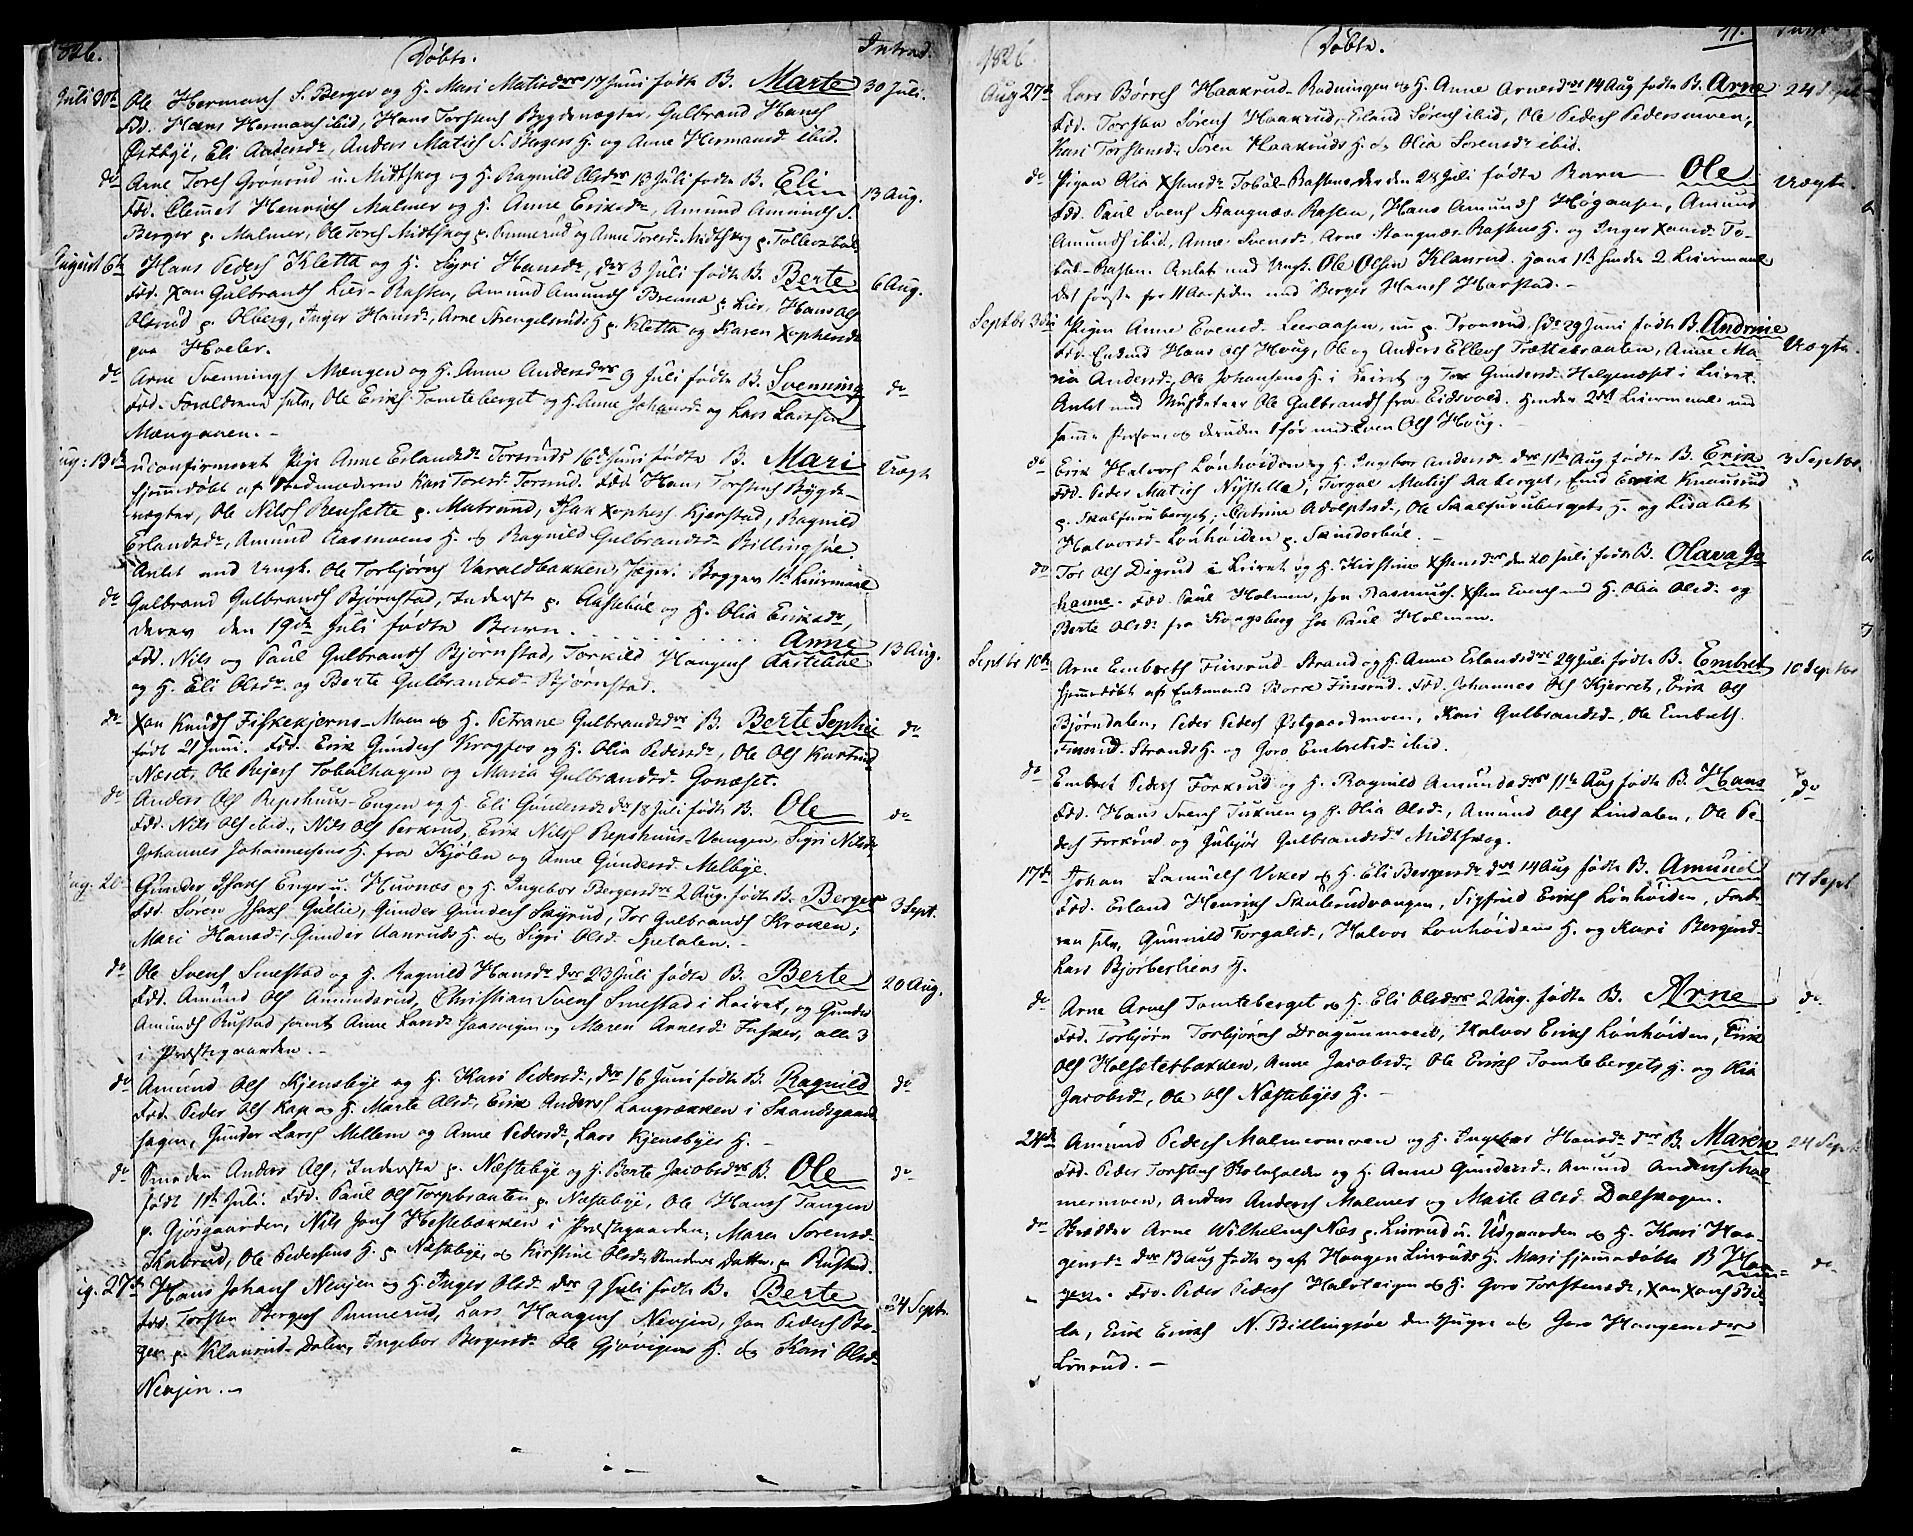 1826. Døbte. Introd.
Juli 30te Ole Hermans S. Berger og H. Mari Matisdr 17 Juni fødte B. Marte 30 Juli.
Fdd. Hans Hermans ibid, Hans Torstens Bygdevægter, Gulbrand Hans
Østbye, Eli Andersdr, Anders Matis S. Bergers H. og Anne Hermansd. ibid.
do Arne Tores Grönrud u. Midtskog og H. Ragnild Olsdr 13 Juli fødte B. Eli 13 Aug.
Fdd. Clemet Henrichs Malmer og H. Anne Eriksdr, Amund Amunds S.
Berger p. Malmer, Ole Tores Midtskog p. Pinnerud og Anne Toresd. Midtskog p.
August 6te Hans Peders Kletta og H. Sigri Hansdr, 3 Juli fødte B. Berte 6 Aug.
Fdd. Xan Gulbrands Lier-Rasten, Amund Amunds Brenna p. Lier, Hans Ols
Olsrud p. Olberg, Inger Hansdr, Arne H p. Kletta og Karen Xophersdr
paa Hoeler.
do Arne Svennings Mængen og H. Anne Andersdr 9 Juli fødte B. Svenning do
Fdd. Forældrene selv, Ole Eriks Tomteberget og H. Anne Johansdr og Lars Larsen
Mængaaen. -
Aug: 13de uconfirmeret Pige Anne Erlandsdr Torsruds 16de Juni fødte B. Mari Uægt
hjemmedøbt af Stedmoderen Kari Toresd. Torsrud. Fdd. Hans Torstens Bygde-
vægter, Ole Nils Rensætte p. Matrand, Isak Xophers Kjerstad, Ragnild
Erlandsdr, Amund Aasmoens H. og Ragnild Gulbrandsdr Billingsøe.
Anlet ud Ungk. Ole Torbjørns Varaldbakken, Jæger. Begges 1te Leiermaal
do Gulbrand Gulbrands Björnstad, Inderst p. Aastebøl og H. Olia Eriksdr,
derer den 19de Juli fødte Barn . . . . . . . . . . Anne 13 Aug.
Fdd. Nils og Paul Gulbrands Bjørnstad, Torkild Haagens Aastebøl
og H. Eli Olsdr. og Berte Gulbrandsdr Bjørnstad.
do Xan Knuds Fiskekjerns-Moen og H. Petrane Gulbrandsdr B. Berte Sophie do
født 21 Juni. Fdd. Erik Gunders Krogfos og H. Olia Pedersdr, Ole Ols Kurtrud
Næset, Ole Rejers Tobølhagen og Maria Gulbrandsd. Gonæset.
do Anders Ols Repshuus-Engen og H. Eli Gundersdr 18 Juli fødte B. Ole do
Fdd. Nils Ols ibid., Nils Ols Perkrud, Erik Nils Repshuus-Vangen, Sigri Nilsdr,
Johannes Johannesens H. fra Kjølen og Anne Gundersd. Melbye.
Aug. 20 Gunder Isaks Enger u. Huvnæs og H. Ingebor Bergersdr 2 Aug. fødte B. Berger 3 Sept.
Fdd. Søren Isaks Gullie, Gunder Gunders Skyrud, Tor Gulbrands Kroken,
Mari Hansdr, Gunder Aanruds H. og Sigri Olsd. Spetalen. -
do Ole Svens Smestad og H. Ragnild Hansdr 23 Juli fødte B. Berte 20 Aug.
Fdd. Amund Ols Amundsrud, Christian Svens Smestad i Leiret, og Gunder
Amunds Rustad samt Anne Larsdr og Maren Arnesdr, alle 3
i Præstegaarden. -
do Amund Ols Kjensbye og H. Kari Pedersdr, 16 Juni fødte B. Ragnild do
Fdd. Peder Ols Kap og H. Marte Olsd, Erik Anders Langrækken i Strandsgaard
sagen, Gunder Lars Mellem og Anne Pedersdr, Lars Kjensbyes H. -
do Smeden Anders Ols, Inderste p. Næstebye og H. Berte Jacobsdr B. Ole do
født 11te Juli. Fdd. Paul Ols Torpbraaten p. Næstebye, Ole Hans Tangen
p. Gjøsgaarden, Nils Jons Hestebækken i Præstegaarden, Maren Sørensd.
Skabrud, Ole Pedersens H. p. Næstebye, og Kirstine Olsdr Smedens Datter p. Rustad.
Aug. 27de Hans Johans Nevjen og H. Inger Olsdr 9 Juli fødte B. Berte 24 Sept.
Fdd. Torsten Bergers Pinnerud, Lars Haagens Nevjen, Jan Peders Be-
ger p. Klanrud-Dalen, Ingebor Bergersdr Ole Gjøvigens H. og Kari Olsdr
Nevjen. -
1826. Døbte. 77.
Aug 27de Lars Børres Haakrud-Rudningen og H. Anne Arnesdr 14 Aug fødte B. Arne 24 Sept
Fdd. Torsten Sørens Haakrud, Erland Sørens ibid, Ole Peders Pedersmoen,
Kari Torstensdr Søren Haakruds H. og Olia Sørensdr ibid.
do Pigen Olia Xstensdr Tobøl-Rasten den 24 Juli fødte Barn — Ole Uægte.
Fdd. Paul Svens Stangnæs-Rasten, Hans Amunds Høgaasen, Amund
Amunds ibid, Anne Svensdr Arne Stangnæs-Rastens H. og Inger Xansdr To-
bøl-Rasten. Anlet ud Ungk. Ole Olsen Klanrud. Hans 1te hendes 2 Leiermaal
det første for 11 Aar siden med Berger Hans Harstad. -
Septbr 3die Pigen Anne Evensd. Leeraasen, nu p. Tronsrud, 29 Juni fødte B. Andrine Uægte.
Fdd. Enkmd Hans Ols Houg, Ole og Anders Ellevs Trættebraaten, Anne Ma-
ria Andersdr Ole Johansens H. i Leiret og Tor Gundersd. Helgenæset i Leiret.
Anlet ud Musketeer Ole Gulbrands fra Eidsvold. Hendes 2det Leiermaal med
samme Person, og desuden 1 før med Even Ols Houg.
do Erik Halvors Lönhöiden og H. Ingebor Andersdr 11te Aug fødte B. Erik 3 Septbr
Fdd. Peder Matis Nystelle, Torgal Matis Aaberget, Emd Erik Knaurud
p. Skalfuruberget, Catrine Adolphsdr, Ole Skalfurubergets H. og Lisabet
Halvorsd. Lönhöiden p. Skinderbøl. -
do Tor Ols Digrud i Leiret og H. Kirstine Xstensdr den 20 Juli fødte B. Olava Jo-
hanne. Fdd. Paul Holmen, Jon Rasmus, Xsten Evens med H. Olia Olsd. og
Berte Olsdr fra Kongsberg hos Paul Holmen.
Septbr 10de Arne Embrets Finsrud Strand og H. Anne Erlandsdr 29 Juli fødte B. Embret 10 Septbr
hjemmedøbt af Enkemand Børre Finsrud. Fdd. Johannes Ols Kjerret, Erik Ols
Bjørndalen, Peder Peders Østgaardmoen, Kari Gulbrandsdr, Ole Embrets
Finsrud-Strands H. og Goro Embretsdr ibid.
do Embret Peders Forkrud og H. Ragnild Amundsdr 11te Aug fødte B. Hans do
Fdd. Hans Svens Tuknen og H. Olia Olsdr, Amund Ols Lindalen, Ole Pe-
ders Forkrud og Gubjør Gulbrandsdr Midtskog.
17de Johan Samuels Voker og H. Eli Bergersdr 14 Aug fødte B. Amund 17 Sept
Fdd. Erland Henrichs Skulerudvangen, Sigfred Eriks Lönhöiden, Fade-
ren selv, Gunnild Torgalsd., Halvor Lönhöidens H. og Kari Bergersd.
Lars Bjørberliens H.
do Arne Arnes Tomteberget og H. Eli Olsdr 2 Aug. fødte B. Arne do.
Fdd. Torbjørn Torbjørns Dragunmoen, Halvor Eriks Lönhöiden, Erik
Ols Holsæterbakken, Anne Jacobsd. Ole Eriks Tomtebergets H. og Olia
Jacobsdr, Ole Ols Næstebyes H. -
24de Amund Peders Malmermoen og H. Ingebor Hansdr B. Maren 24 Sept
Fdd. Peder Torstens Kolnhølen og H. Anne Gundersd. Amund Anders Mal-
mermoen, Anders Anders Malmer og Marte Olsd. Dalskogen.
do Skrædder Arne Wilhelms Næs p. Linrud u. Udgaarden og H. Kari Haa-
gensdr 13 Aug fødte og af Haagen Linruds H. Mari hjemmedøbte B Haa- do
gen. Fdd. Peder Peders Halsteigen og H. Goro Torstensdr, Xan Xans Bil-
la, Erik Eriks N. Billingsøe den yngre og Goro Haagensdr
Linrud. -